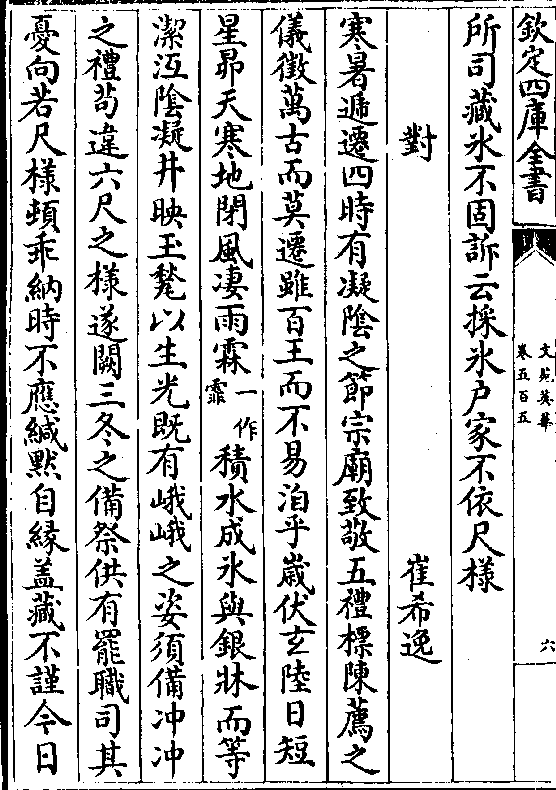 欽定四庫全書
文苑英華
卷五百五
六
所司藏氷不固訴云採氷户家不依尺樣
對
崔希逸
寒暑遞遷四時有凝陰之節宗廟致敬五禮標陳薦之
儀徴萬古而莫遷雖百王而不易洎乎嵗伏玄陸日短
星昴天寒地閉風凄雨霖一作霏積水成氷與銀牀而等
潔沍陰凝井映玉甃以生光既有峨峨之姿須備冲冲
之禮茍違六尺之樣遂闕三冬之備祭供有罷職司其
憂向若尺樣頓乖納時不應緘黙自縁盖藏不謹今日